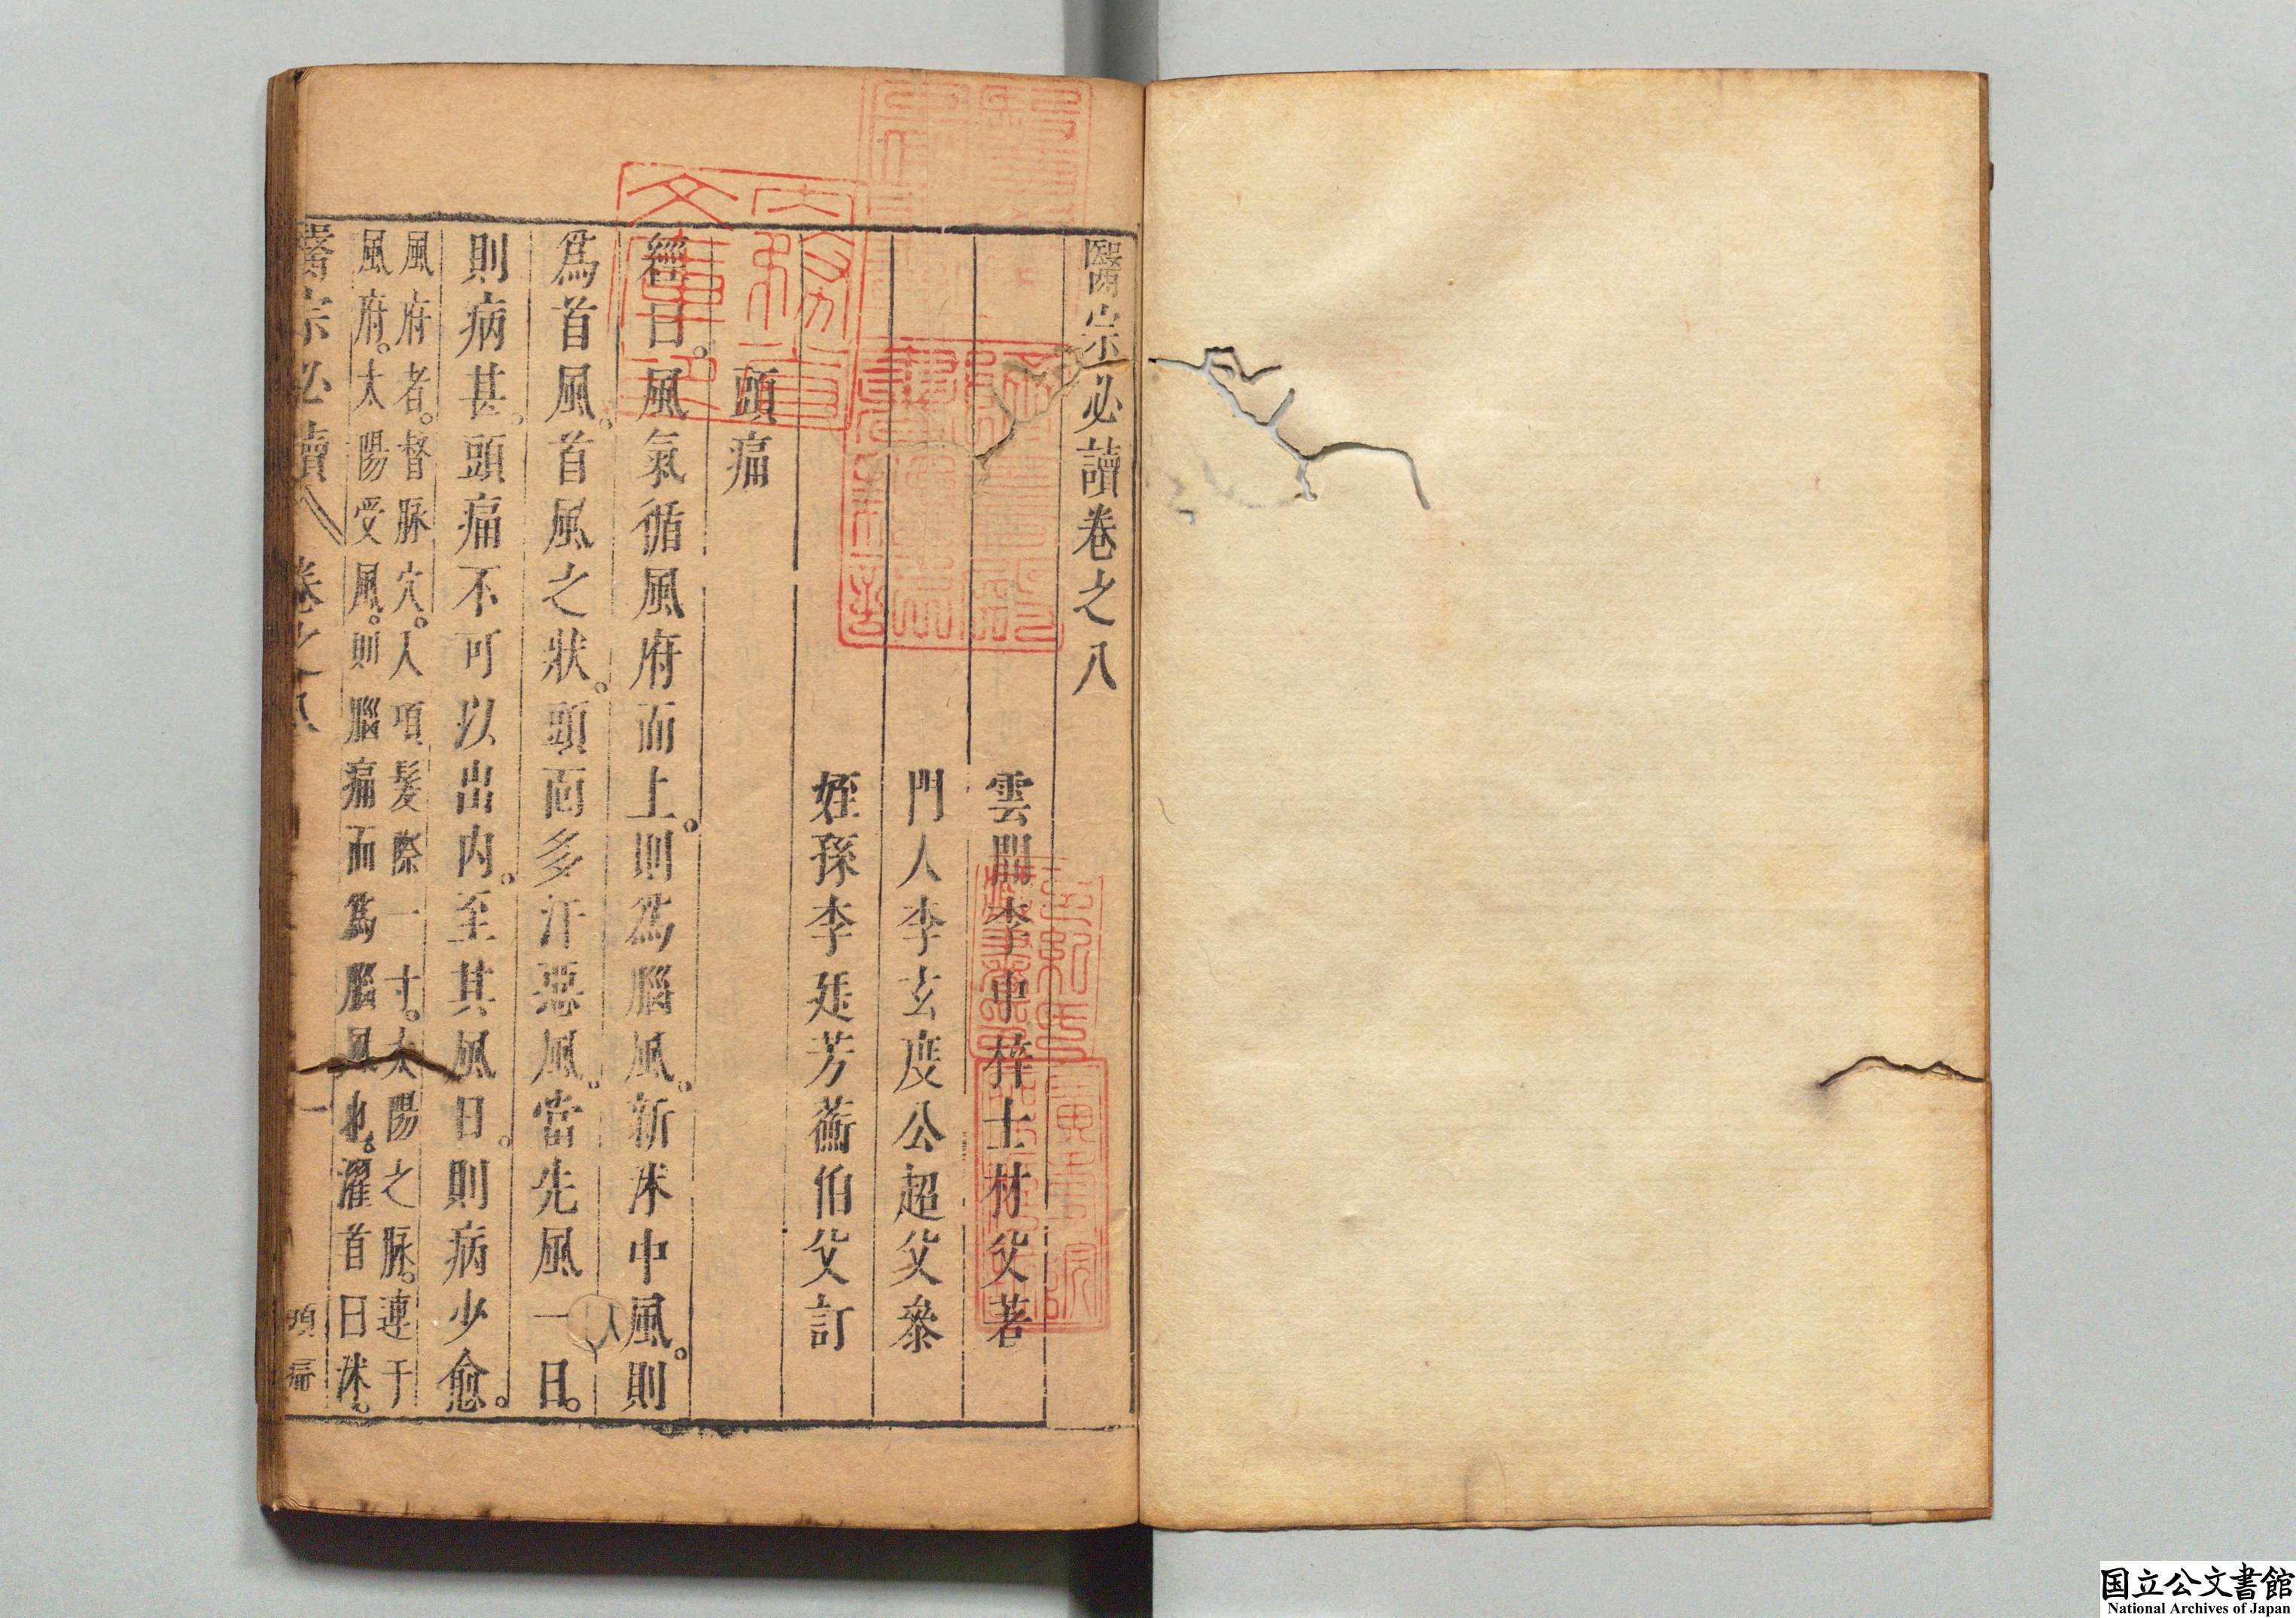 醫宗必讀卷之八
雲間李中梓士材父著
門人李玄度公超父參
姪孫李廷芳蘅伯父訂
頭痛
經曰。風氣循風府而上。則爲腦風。新沐中風。則
爲首風。首風之狀。頭面多汗惡風。當先風一日。
則病甚。頭痛不可以出內。至其風日。則病少愈。
風府者。督脉穴。入項髮際一寸。太陽之脉。連于
風府。太陽受風。則腦痛而爲腦風也。濯首曰沐。
醫宗必讀 卷之八 一 頭痛
内務省文庫印
国立公文書館
National Archives of Japan